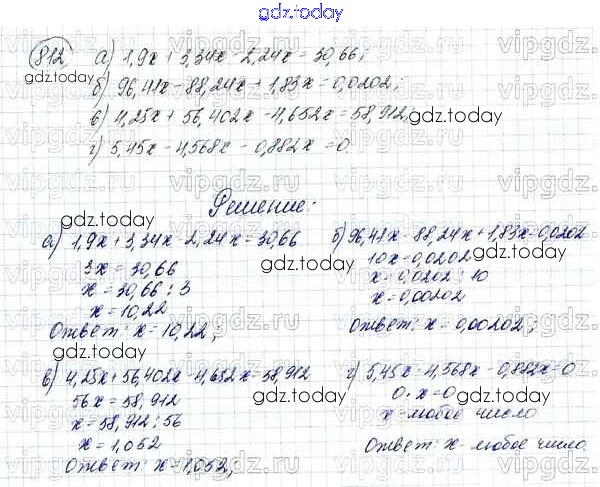 gdz.today
812 а) 1,9x + 3,34x - 2,24x = 30,66;
gdz.today
б) 96,41x - 88,24x + 1,83x = 0,0202;
в) 4,25x + 56,402x - 4,652x = 58,912;
г) 5,45x - 4,568x - 0,882x = 0.
gdz.today
Решение:
gdz.today
а) 1,9x + 3,34x - 2,24x = 30,66
3x = 30,66
x = 30,66 : 3
x = 10,22
Ответ: x = 10,22;
gdz.today
б) 96,41x - 88,24x + 1,83x = 0,0202
10x = 0,0202
x = 0,0202 : 10
x = 0,00202
Ответ: x = 0,00202;
gdz.today
в) 4,25x + 56,402x - 4,652x = 58,912
56x = 58,912
x = 58,912 : 56
x = 1,052
Ответ: x = 1,052;
gdz.today
г) 5,45x - 4,568x - 0,882x = 0
0 · x = 0
x - любое число
Ответ: x - любое число.
gdz.today
vipgdz.ru